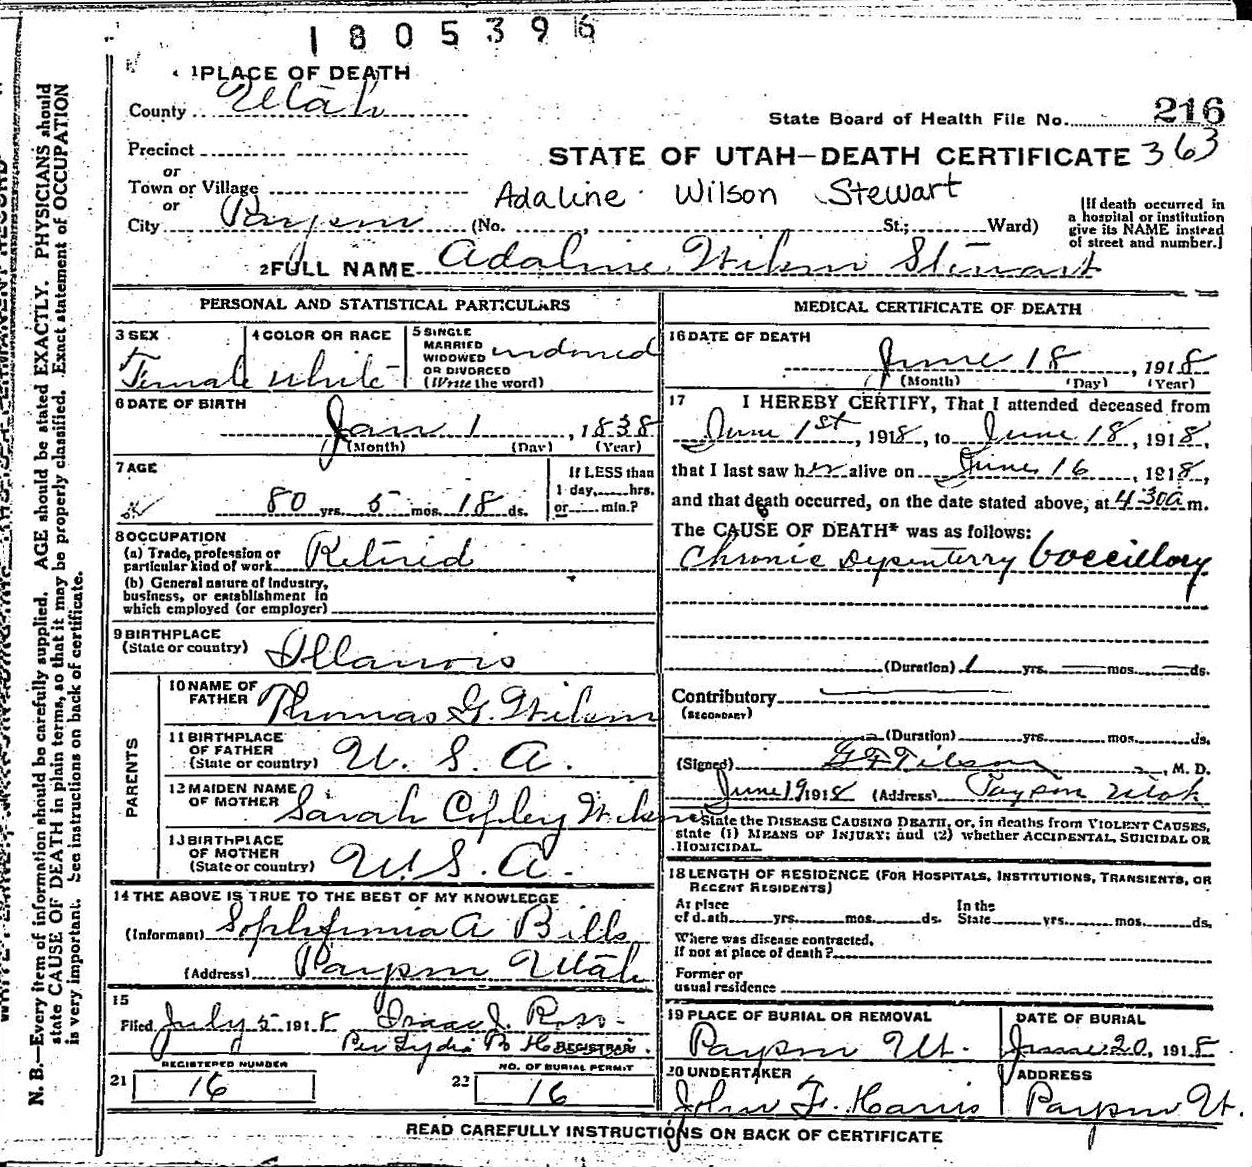 1805396
1 PLACE OF DEATH
County Utah
State Board of Health File No. 216
Precinct
STATE OF UTAH—DEATH CERTIFICATE 363
or
Town or Village
Adaline Wilson Stewart
or
City Payson (No. , St.; Ward)
[If death occurred in
a hospital or institution
give its NAME instead
of street and number.]
2 FULL NAME Adaline Wilson Stewart
PERSONAL AND STATISTICAL PARTICULARS
3 SEX
Female
4 COLOR OR RACE
White
5 SINGLE
MARRIED
WIDOWED
OR DIVORCED
(Write the word)
widowed
6 DATE OF BIRTH
Jan 1, 1838
(Month) (Day) (Year)
7 AGE
80 yrs. 5 mos. 18 ds.
If LESS than
1 day, hrs.
or min.?
8 OCCUPATION
(a) Trade, profession or
particular kind of work Retired
(b) General nature of Industry,
business, or establishment in
which employed (or employer)
9 BIRTHPLACE
(State or country) Illanois
PARENTS
10 NAME OF
FATHER Thomas G. Wilson
11 BIRTHPLACE
OF FATHER
(State or country) U. S. A.
12 MAIDEN NAME
OF MOTHER Sarah Copley Wilson
13 BIRTHPLACE
OF MOTHER
(State or country) U. S. A.
14 THE ABOVE IS TRUE TO THE BEST OF MY KNOWLEDGE
(Informant) A Bills
(Address) Payson Utah
15
Filed July 5 1918 Isaac J. Ross
Per Lydia B REGISTRAR.
REGISTERED NUMBER
21 16
NO. OF BURIAL PERMIT
22 16
MEDICAL CERTIFICATE OF DEATH
16 DATE OF DEATH
June 18, 1918
(Month) (Day) (Year)
17 I HEREBY CERTIFY, That I attended deceased from
June 1st, 1918, to June 18, 1918,
that I last saw her alive on June 16, 1918,
and that death occurred, on the date stated above, at 4 30a m.
The CAUSE OF DEATH* was as follows:
Chronic Dysenterry
(Duration) 1 yrs. mos. ds.
Contributory
(SECONDARY)
(Duration) yrs. mos. ds.
(Signed) , M. D.
June 19 1918 (Address) Payson Utah
State the DISEASE CAUSING DEATH, or, in deaths from VIOLENT CAUSES,
state (1) MEANS OF INJURY; and (2) whether ACCIDENTAL, SUICIDAL OR
HOMICIDAL.
18 LENGTH OF RESIDENCE (FOR HOSPITALS, INSTITUTIONS, TRANSIENTS, OR
RECENT RESIDENTS)
At place
of death yrs. mos. ds.
In the
State yrs. mos. ds.
Where was disease contracted,
if not at place of death?
Former or
usual residence
19 PLACE OF BURIAL OR REMOVAL
Payson Ut.
DATE OF BURIAL
June 20, 1918
20 UNDERTAKER
John F. Harris
ADDRESS
Payson Ut.
READ CAREFULLY INSTRUCTIONS ON BACK OF CERTIFICATE
N. B.—Every item of information should be carefully supplied. AGE should be stated EXACTLY. PHYSICIANS should
state CAUSE OF DEATH in plain terms, so that it may be properly classified. Exact statement of OCCUPATION
is very important. See instructions on back of certificate.